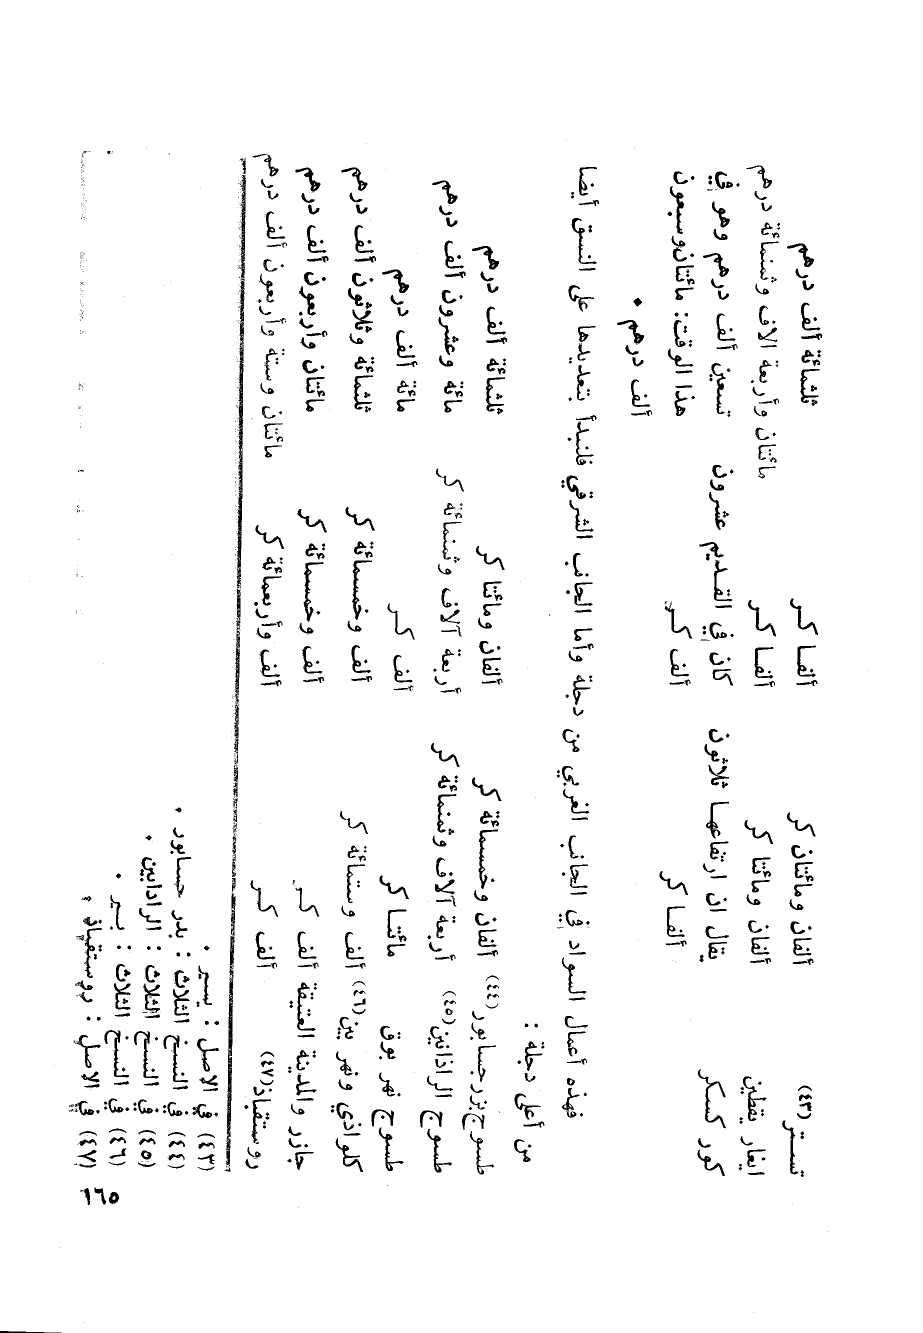 تستر (٤٣) ألفان ومائتان كر ألفا كر ثلثمائة ألف درهم
ايغار يقطين ألفان ومائتا كر ألفا كر مائتان وأربعة الاف وثمنمائة درهم
كور كسكر يقال ان ارتفاعها ثلاثون كان في القديم عشرون تسعين ألف درهم وهو في
ألفا كر ألف كر هذا الوقت: مائتان وسبعون
ألف درهم .
فهذه أعمال السواد في الجانب الغربي من دجلة وأما الجانب الشرقي فلنبدأ بتعديدها على النسق أيضا
من أعلى دجلة :
طسوج بزرجسابور (٤٤) ألفان وخمسمائة كر ألفان ومائتا كر ثلثمائة ألف درهم
طسوج الراذانين (٤٥) أربعة آلاف وثمنمائة كر أربعة آلاف وثمنمائة كر مائة وعشرون ألف درهم
طسوج نهر بوق مائتا كر ألف كر مائة ألف درهم
كلواذي ونهر بين (٤٦) ألف وستمائة كر ألف وخمسمائة كر ثلثمائة وثلاثون ألف درهم
جازر والمدينة العتيقة ألف كر ألف وخمسمائة كر مائتان وأربعون ألف درهم
روستقباذ (٤٧) ألف كر ألف وأربعمائة كر مائتان وستة وأربعون ألف درهم
(٤٣) في الاصل : يسير .
(٤٤) في النسخ الثلاث : بدر حسابور .
(٤٥) في النسخ الثلاث : الرادابين .
(٤٦) في النسخ الثلاث : بسير .
(٤٧) في الاصل : دوستقباذ .
١٦٥